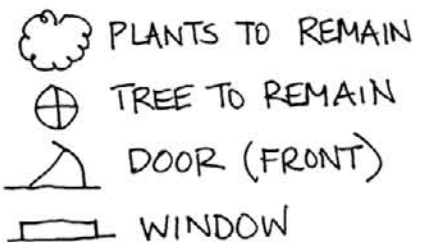 PLANTS TO REMAIN
TREE TO REMAIN
DOOR (FRONT)
WINDOW